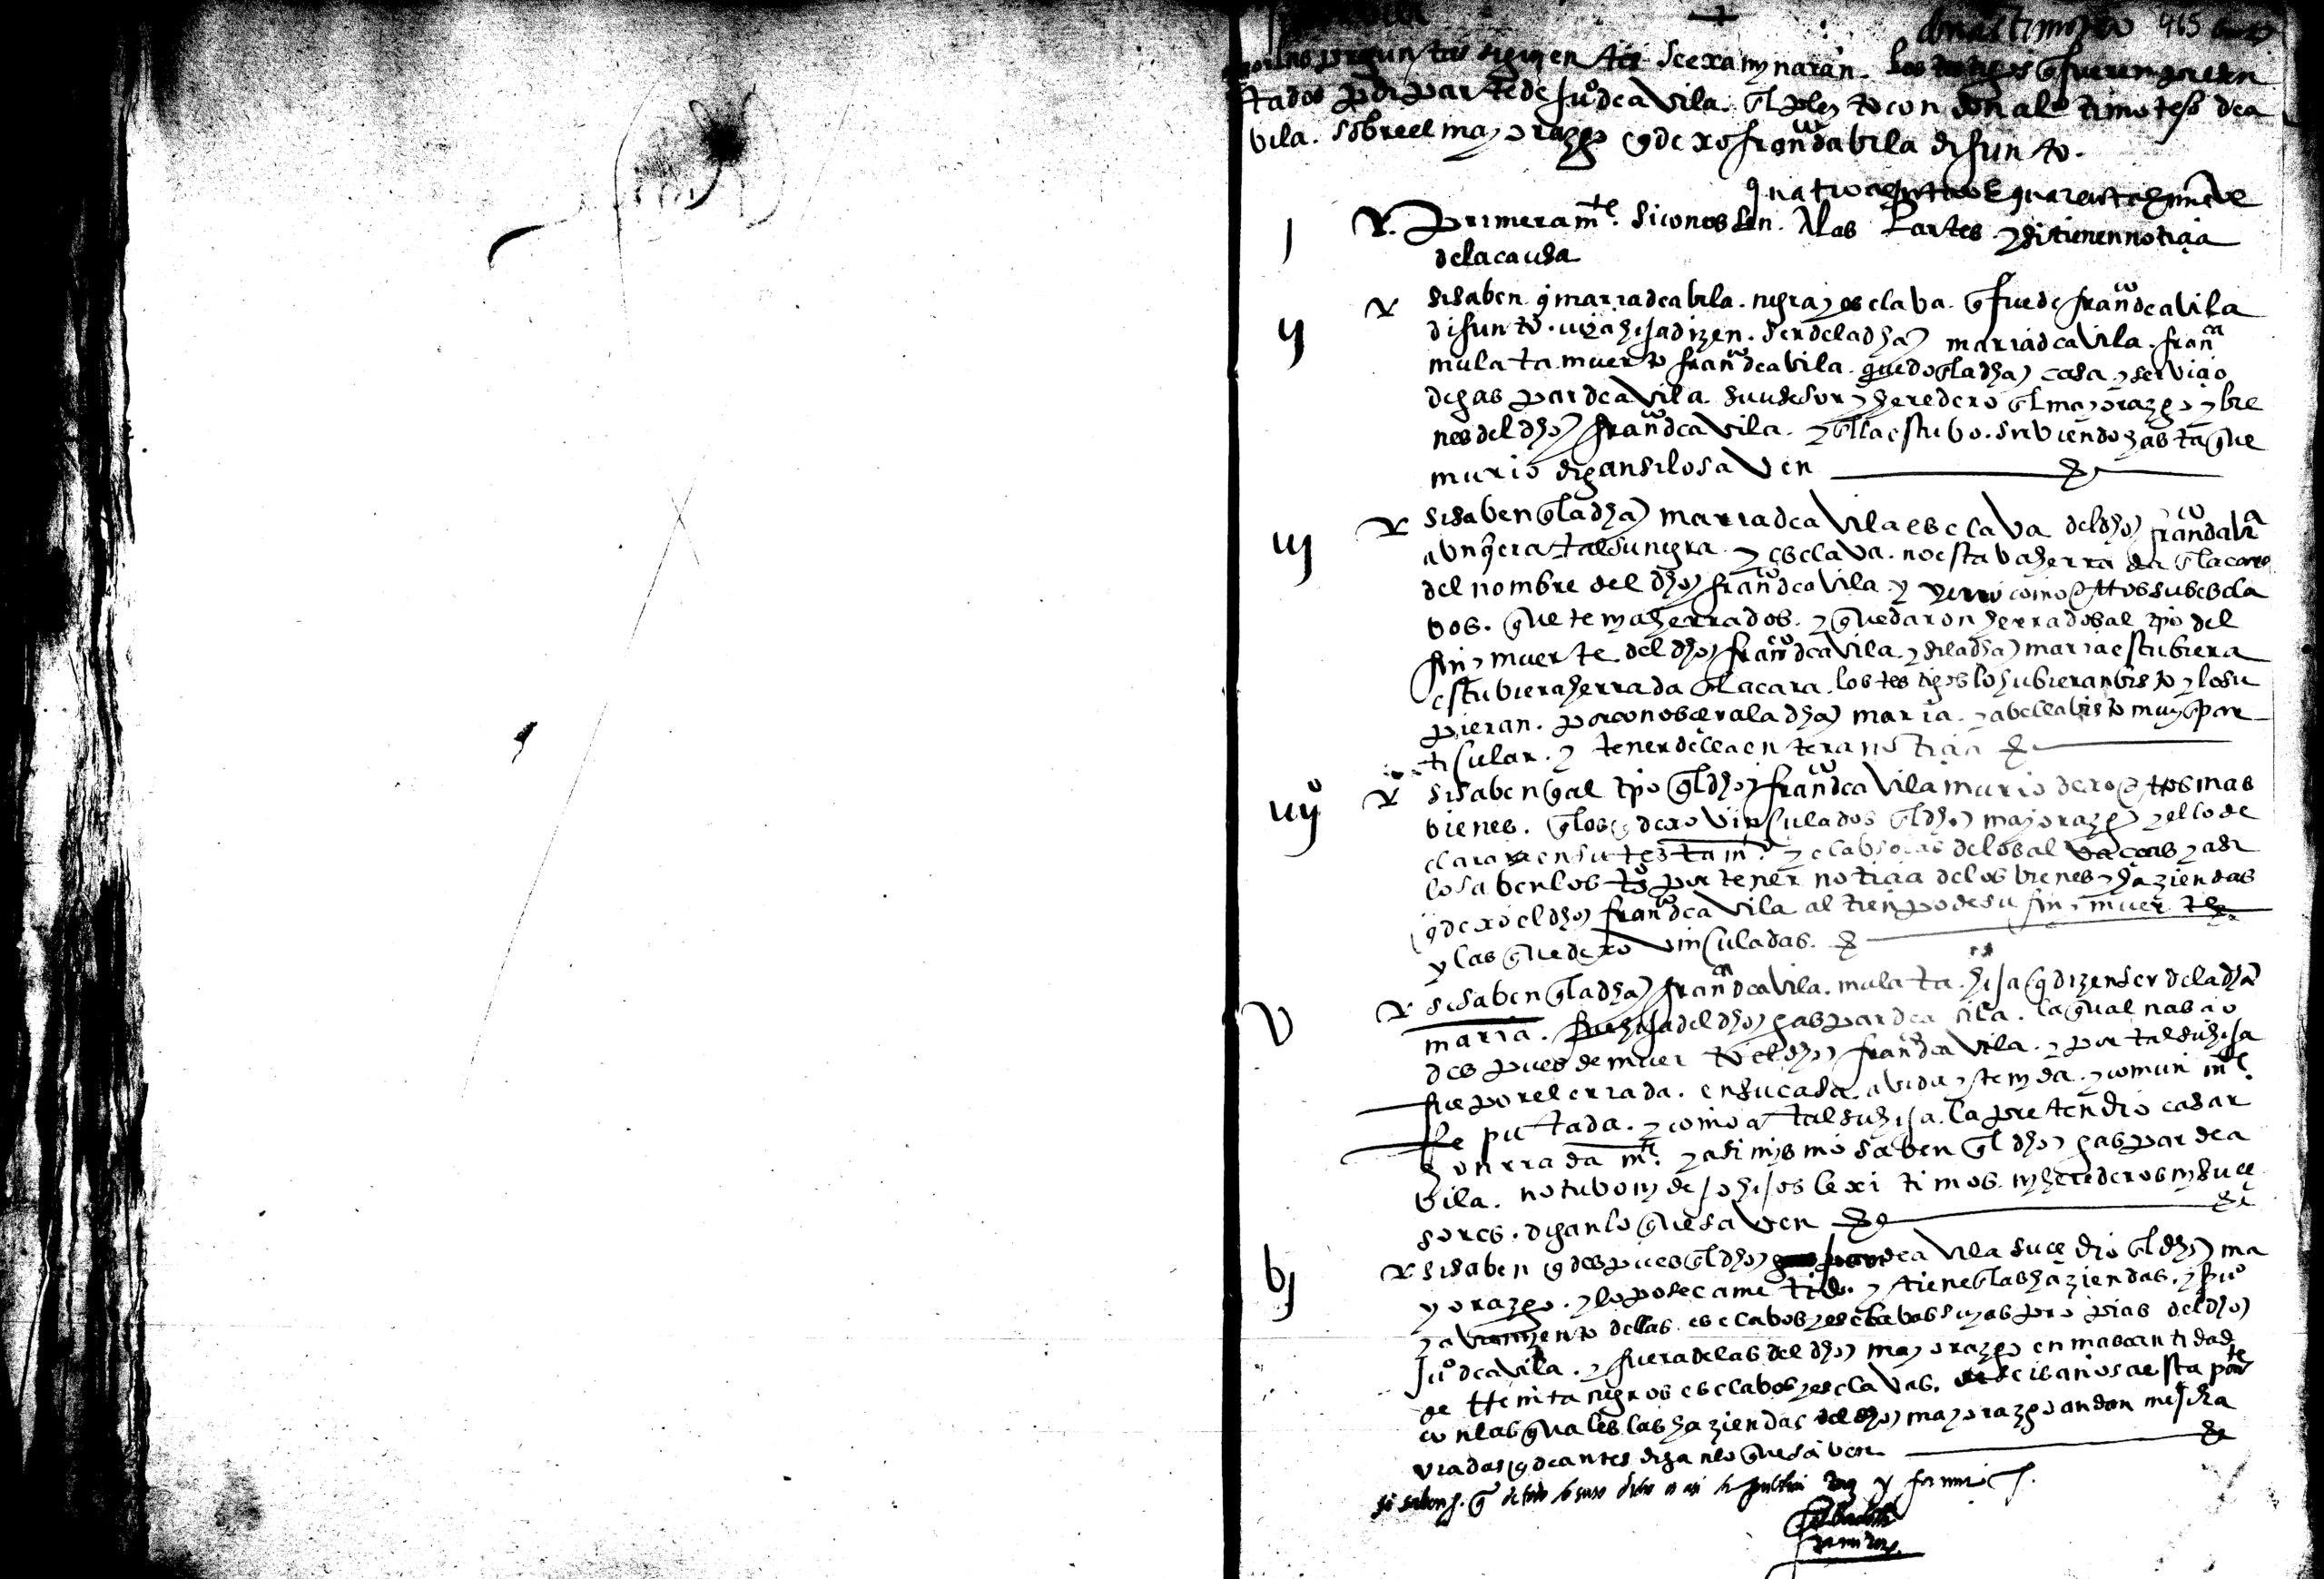 don al timoteo 465
por las preguntas siguientes se examynaran. los testigos q fueren presen
tados por parte de juo de avila. en l pleyto con don alo timoteo de a
vila. sobre el mayorazgo q dexo franco davila difunto.
quatrocientos E quarenta E nueve
j Y. primeramte. si conoscen. A las Partes. y si tienen noticia
de la causa
ij Y si saben. q maria de avila. negra y esclava. q fue de franco de avila
difunto. cuya hija dizen. ser de la dha maria de avila. franca
mulata. muerto franco de avila. quedo en la dha casa. y servicio
de gaspar de avila. subcesor y heredero en l mayorazgo y bie
nes del dho franco de avila. y en ella estubo. sirviendo hasta que
murio digan si lo saven
iij Y si saben q la dha maria de avila esclava del dho franco davila
aunq era tal su negra. y esclava. no estava herrada en la cara
del nombre del dho franco de avila. y yerro como otros sus escla
vos. que tenya herrados. y quedaron herrados al tpo del
fin y muerte del dho franco de avila. y si la dha maria estubiera
estubiera herrada en la cara. los testigos lo hubieran visto y lo su
pieran. por conoscer a la dha maria. y abella visto muy en par
ticular. y tener della entera noticia
iiijo Y si saben q al tpo q l dho franco de avila murio dexo otros mas
bienes. q los q dexo vinculados en l dho mayorazgo y ello de
clara en su testamto. y clabsolas de los al vaceas y asi
lo saben los tos por tener noticia de los bienes y haziendas
q dexo el dho franco de avila al tienpo de su fin y muerte
y las que dexo vinculadas.
v Y si saben q la dha franca de avila. mulata. hija q dizen ser de la dha
maria. fue hija del dho gaspar de avila. la qual nascio
despues de muerto el dho franco de avila. y por tal su hija
fue por el criada. en su casa. avida y tenyda. y comunmte.
Reputada. y como a tal su hija. la pretendio casar
honrradamte. y asi mysmo saben q l dho gaspar de a
vila. no tubo ny dejo hijos lexitimos. ny herederos ny suce
sores. digan lo que saven
vj Y si saben q despues q l dho de avila sucedio en l dho ma
yorazgo. y lo posee a metido. y tiene en las haziendas. y
y aviamyento dellas. esclavos y esclavas suyas propias del dho
juo de avila. y fuera de las del dho mayorazgo en mas cantidad
de treinta negros esclabos y esclavas. de seis años a esta parte
con las quales las haziendas del dho mayorazgo andan mejor a
viadas q de antes digan lo que saven
si saben q. q de todo lo suso dicho es asi la publica voz y fama